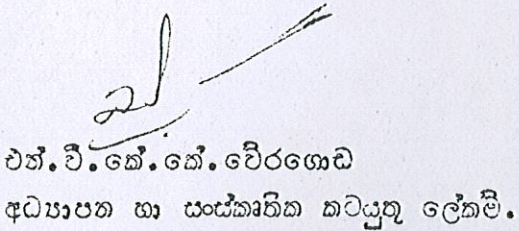 එන්.වී.කේ.කේ.වේරගොඩ
අධ්‍යාපන හා සංස්කෘතික කටයුතු ලේකම්.